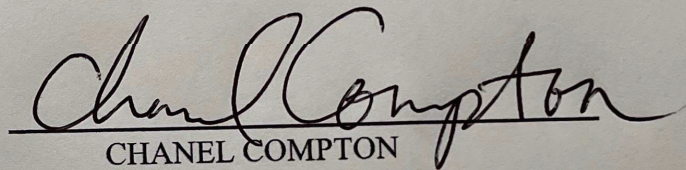 Chanel Compton
CHANEL COMPTON